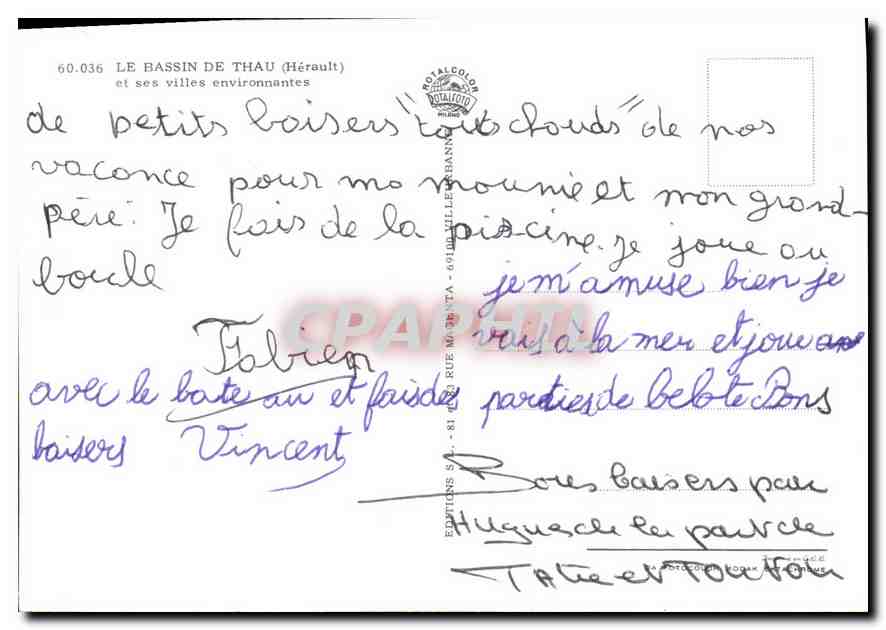 60.036 LE BASSIN DE THAU (Hérault)
et ses villes environnantes
ROTALCOLOR
ROTALFOTO
MILANO
de petits baisers "touts chauds" de nos
vacance pour ma mounie et mon grand-
père. Je fais de la piscine. je joue au
boule
Fabien
je m'amuse bien je
vais à la mer et joue
avec le bateau et fais des parties de belote Bons
baisers Vincent
Bons baisers par
Hugues de la part de
Tatie et Tonton
EDITIONS S.L. - 81 83 RUE MAGENTA - 69100 VILLEURBANNE
FOTOCOLOR KODAK EKTACHROME
CPAPHIL